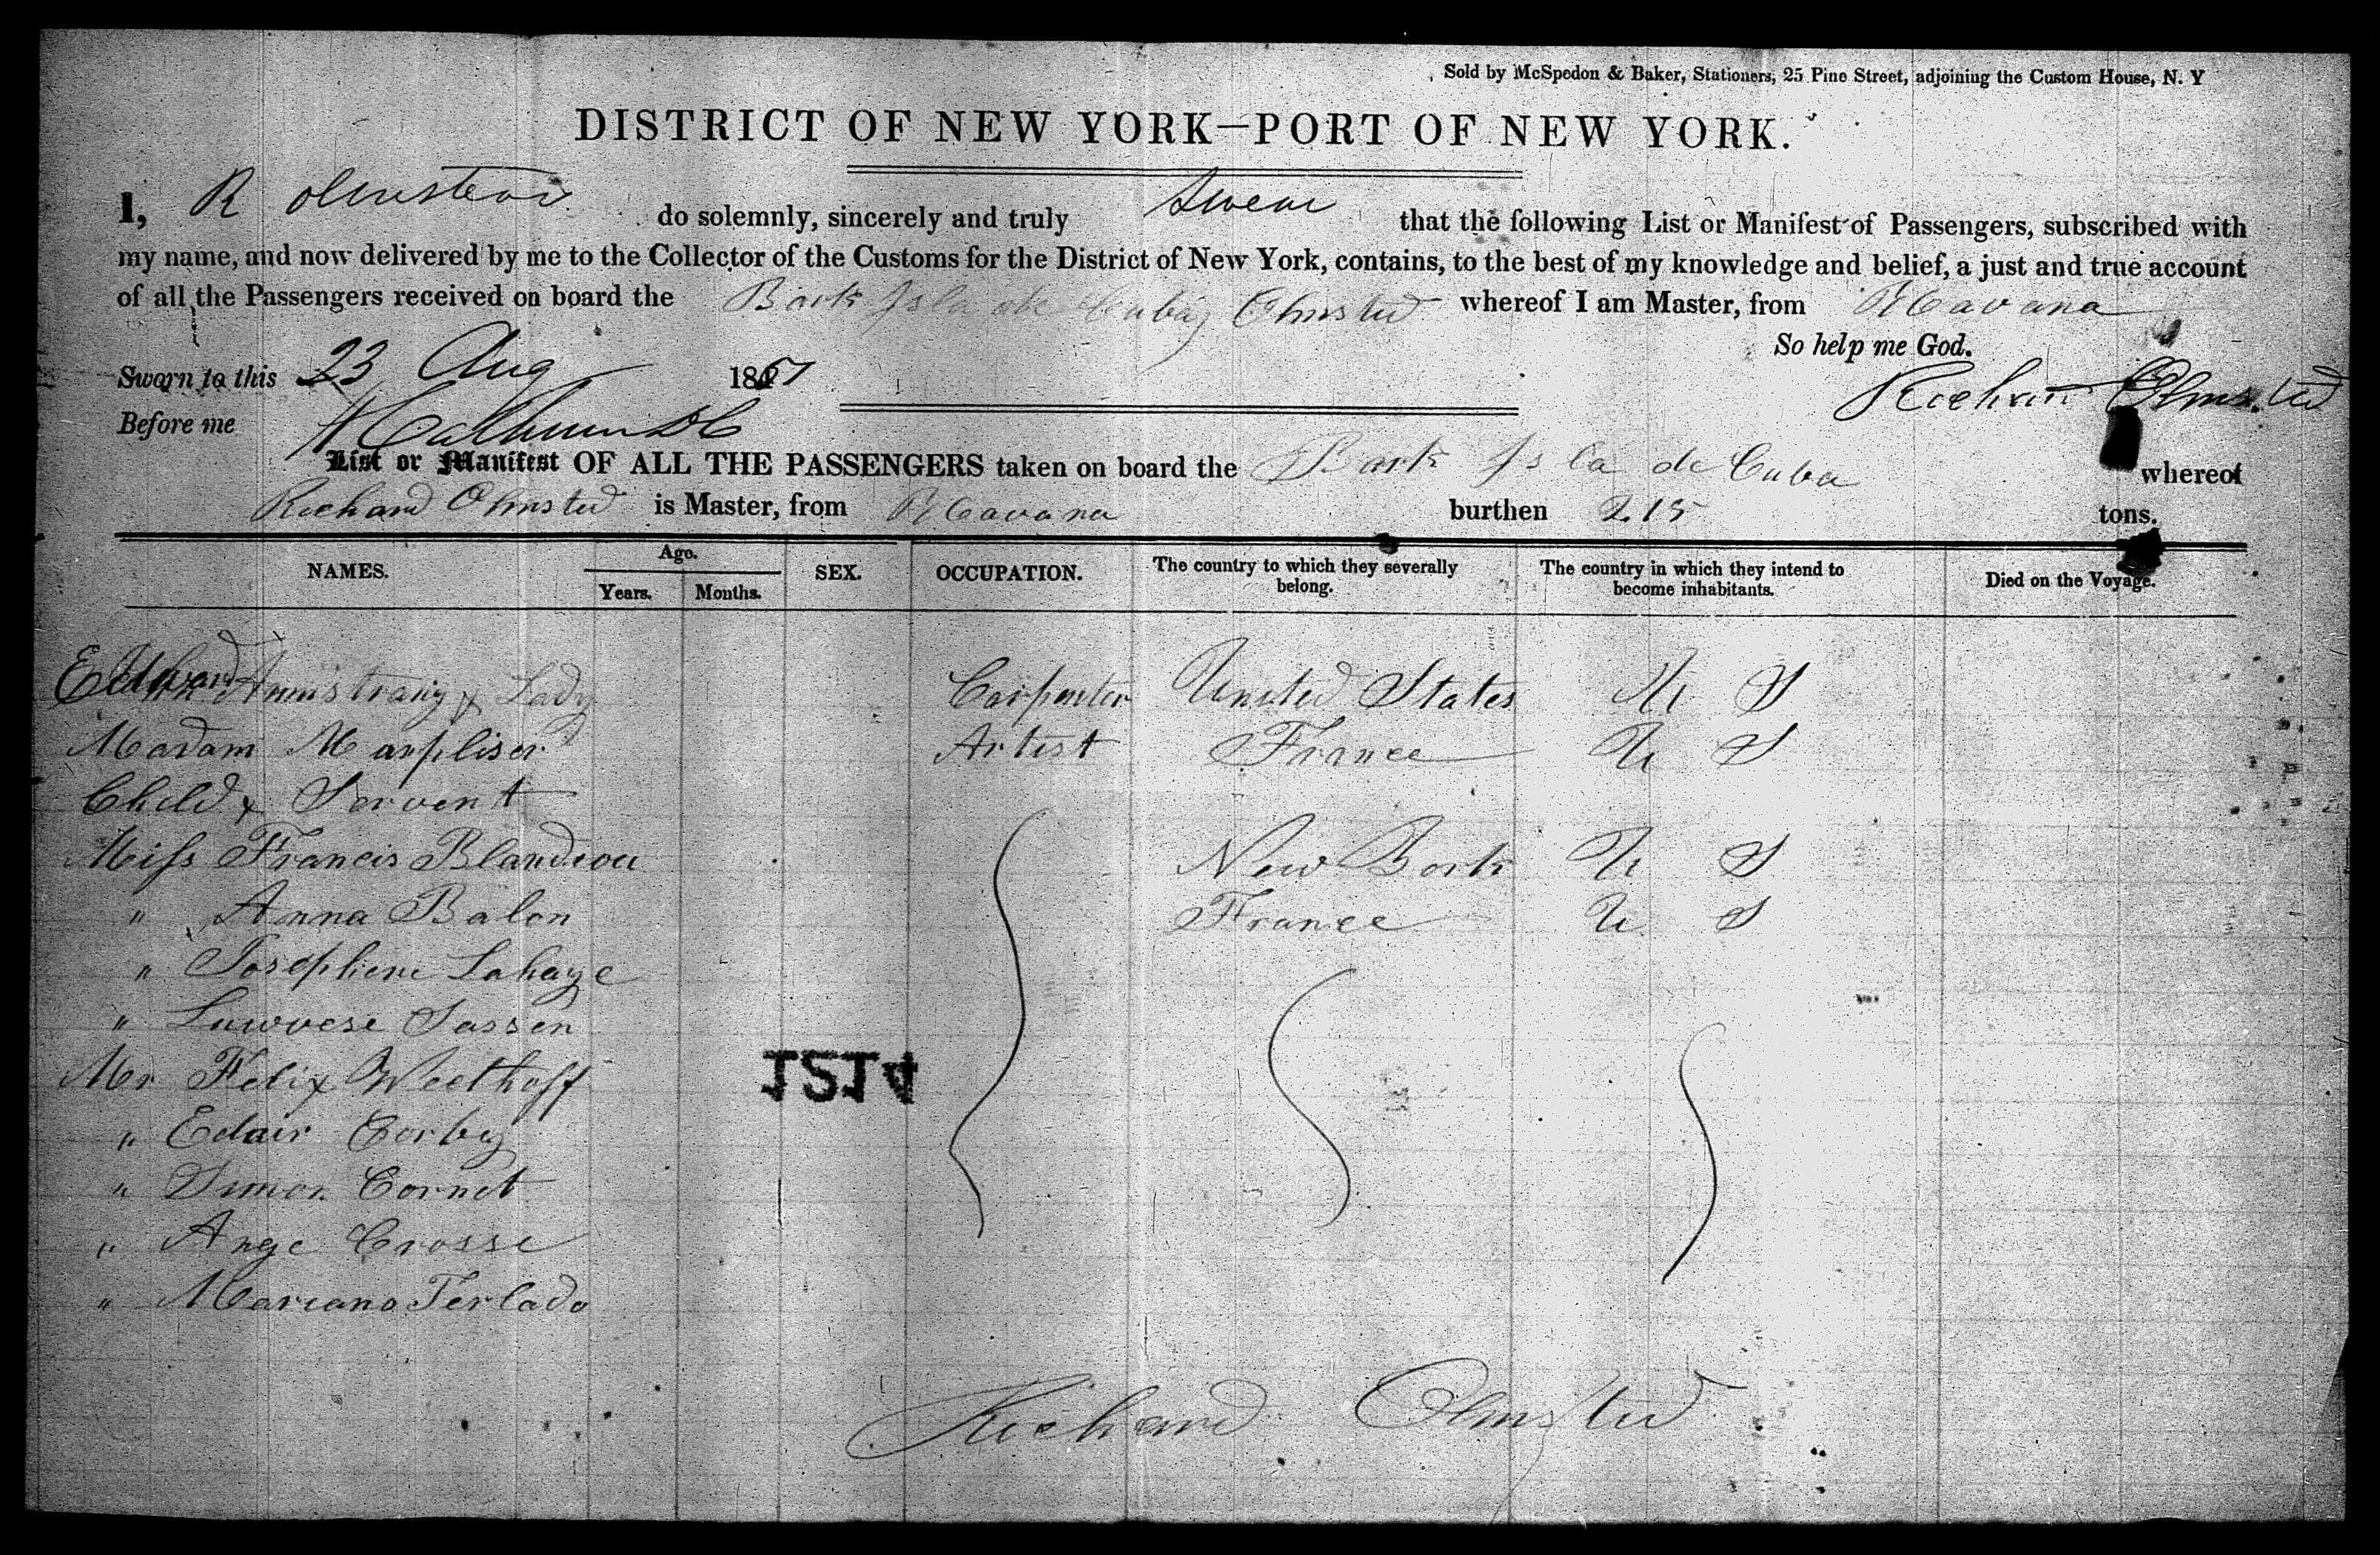 Sold by McSpedon & Baker, Stationers, 25 Pine Street, adjoining the Custom House, N. Y
DISTRICT OF NEW YORK—PORT OF NEW YORK.
I, R Olmstead do solemnly, sincerely and truly Swear that the following List or Manifest of Passengers, subscribed with
my name, and now delivered by me to the Collector of the Customs for the District of New York, contains, to the best of my knowledge and belief, a just and true account
of all the Passengers received on board the Bark Isla de Cuba, Olmsted whereof I am Master, from Havana
So help me God.
Sworn to this 23 Aug 1851
Richard Olmsted
Before me
List or Manifest OF ALL THE PASSENGERS taken on board the Bark Isla de Cuba whereof
Richard Olmsted is Master, from Havana burthen 215 tons.
NAMES. Age. Years. Months. SEX. OCCUPATION. The country to which they severally belong. The country in which they intend to become inhabitants. Died on the Voyage.
Edward Armstrang & Lady Carpenter United States U S
Madam Marpliser Artist France U S
Child & Servent
Miss Francis Blandeou New York U S
" Anna Balon France U S
" Josephene Lahaye
" Luwvese Sassen
Mr Felix Weethoff
" Edair Corby
" Simon Cornet
" Ange Crosse
" Mareano Terlado
Richard Olmsted